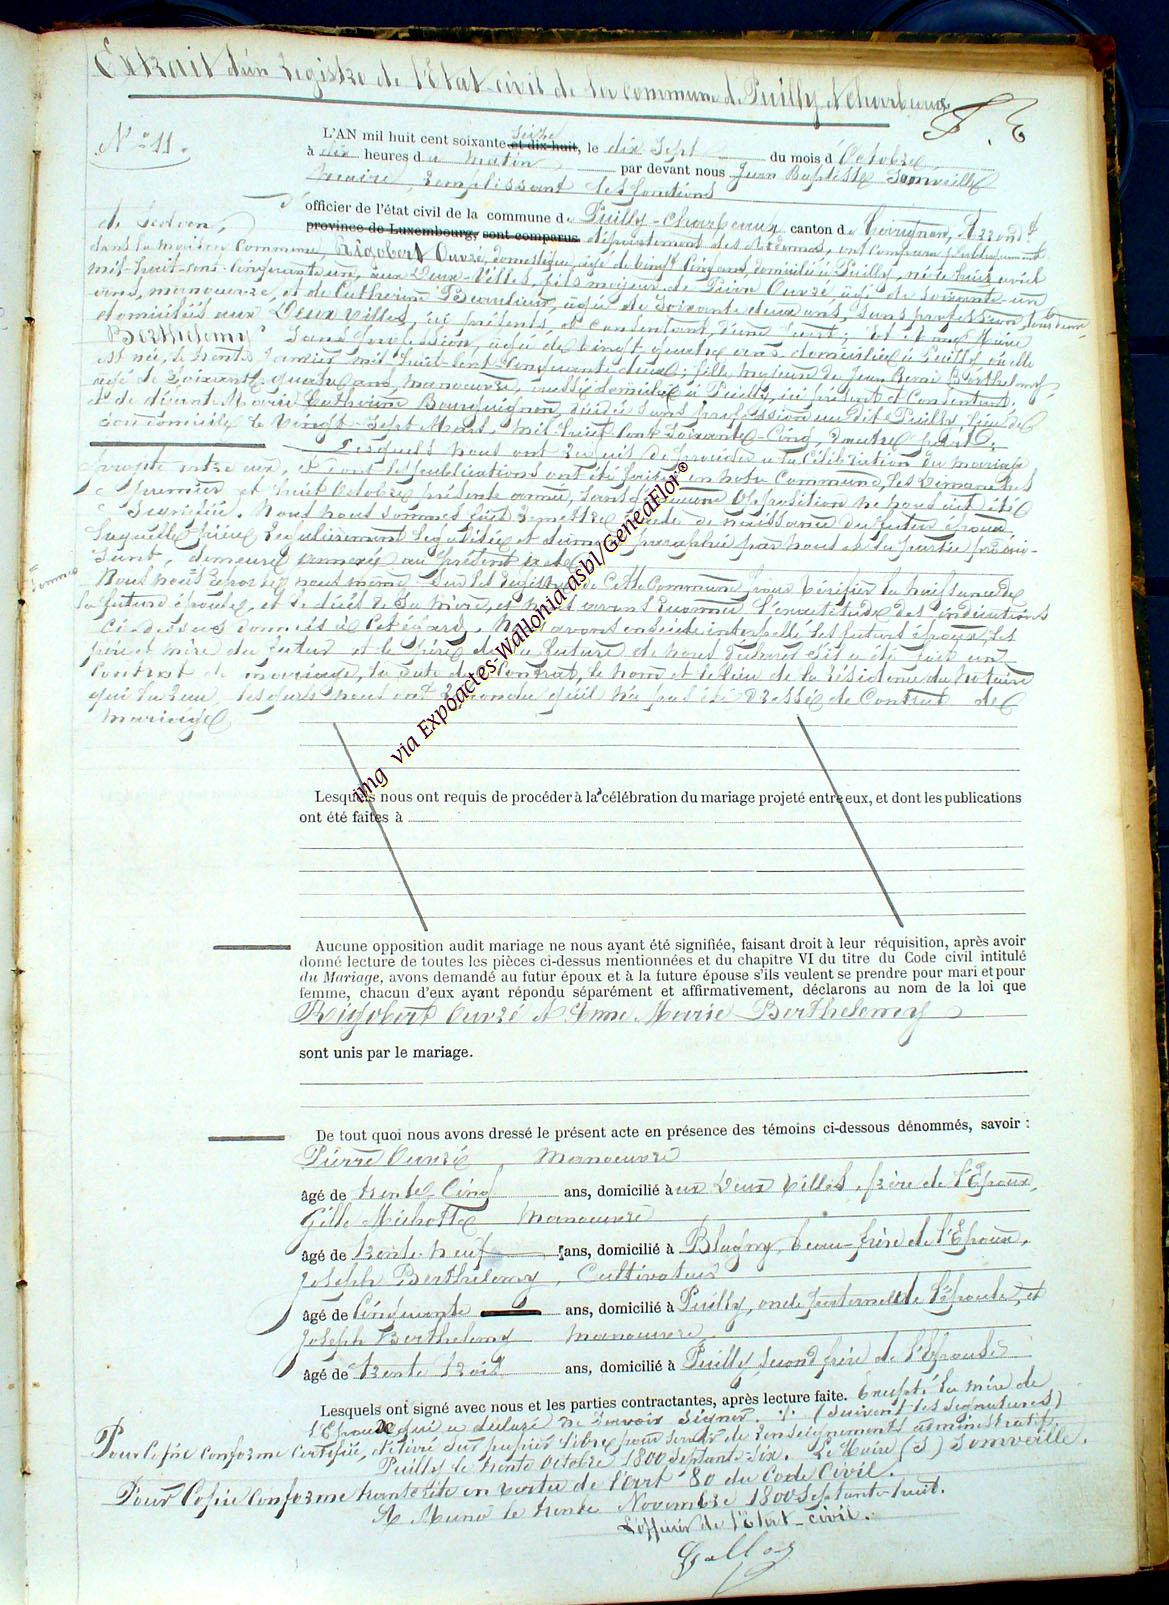 Extrait d'un Registre de l'Etat-civil de la commune de Puilly & Charbeaux
N° 11.
L'AN mil huit cent soixante seize et dix-huit, le dix Sept du mois d'Octobre
à dix heures du matin par devant nous Jean Baptiste Somveille
Maire, remplissant les fonctions
officier de l'état civil de la commune de Puilly-Charbeaux canton de Carignan, Arrondt
de Sedan, province de Luxembourg, sont comparus département des Ardennes, ont comparu publiquement
dans la maison Commune, Rigobert Ouvré, domestique, âgé de vingt Cinq ans, domicilié à Puilly, né le treize avril
mil-huit-cent-cinquante un, aux Deux-Villes, fils majeur de Pierre Ouvré, âgé de soixante-un
ans, manoeuvre, et de Catherine Beaulieux, âgée de soixante deux ans, sans profession, tous deux
domiciliés aux Deux Villes, ici présents et consentant, d'une part; Et Anne Marie
Berthelemy Sans profession, âgée de vingt quatre ans domiciliée à Puilly où elle
est née, le trente Janvier mil huit-Cent-Cinquante deux; fille majeure de Jean Remi Berthelemy
âgé de Soixante-quatre ans, manoeuvre, domicilié à Puilly, ici présent et Consentant,
et de défunte Marie Catherine Bourguignon, décédée sans profession au dit Puilly, lieu de
son domicile le vingt-Sept Mars mil huit Cent Soixante-Cinq, d'autre part.
Lesquels nous ont requis de procéder à la Célébration du mariage
projeté entre eux, et dont les publications ont été faites en notre Commune, les Dimanches
premier et huit Octobre présente année, Sans qu'aucune Opposition ne nous ait été
Signifiée. Nous nous sommes fait remettre l'acte de naissance du futur époux,
laquelle pièce régulièrement légalisée et dûment paraphée par nous et la partie
demeure annexée au présent acte.
Nous nous sommes reportés nous même sur les Registres de Cette Commune pour vérifier la naissance de
la future épouse, et le décès de Sa mère, et nous avons reconnu l'exactitude des indications
Ci-dessus données à cet égard. Nous avons ensuite interpellé les futurs époux, les
père et mère du futur et le père de la future de nous déclarer s'il a été fait un
Contrat de mariage, la date de ce Contrat, le nom et le lieu de la résidence du Notaire
qui l'a reçu, lesquels nous ont répondu qu'il n'a pas été Dressé de Contrat de
mariage
img via Expoactes-Wallonia asbl/GeneaFlor®
Lesquels nous ont requis de procéder à la célébration du mariage projeté entre eux, et dont les publications
ont été faites à
Aucune opposition audit mariage ne nous ayant été signifiée, faisant droit à leur réquisition, après avoir
donné lecture de toutes les pièces ci-dessus mentionnées et du chapitre VI du titre du Code civil intitulé
du Mariage, avons demandé au futur époux et à la future épouse s'ils veulent se prendre pour mari et pour
femme, chacun d'eux ayant répondu séparément et affirmativement, déclarons au nom de la loi que
Rigobert Ouvré & Anne Marie Berthelemy
sont unis par le mariage.
De tout quoi nous avons dressé le présent acte en présence des témoins ci-dessous dénommés, savoir :
Pierre Ouvré, Manoeuvre
âgé de trente-Cinq ans, domicilié à aux Deux Villes, frère de l'Epoux,
Gille Michotte Manoeuvre
âgé de trente-neuf ans, domicilié à Blagny, beau-frère de l'Epoux,
Joseph Berthelemy, Cultivateur
âgé de Cinquante ans, domicilié à Puilly, oncle paternel de l'épouse, et
Joseph Berthelemy Manoeuvre,
âgé de trente trois ans, domicilié à Puilly, second frère de l'Epouse
Lesquels ont signé avec nous et les parties contractantes, après lecture faite. Excepté la mère de
l'Epoux qui a déclaré ne savoir Signer. (Suivent les Signatures)
Pour Copie Conforme Certifiée, délivré Sur papier libre pour servir de renseignements administratifs.
Puilly le trente Octobre 1800 Septante-Six. Le Maire (S) Somveille.
Pour Copie Conforme transcrite en vertu de l'art 80 du Code Civil.
A Muno le trente Novembre 1800 Septante-huit.
L'officier de l'Etat-civil.